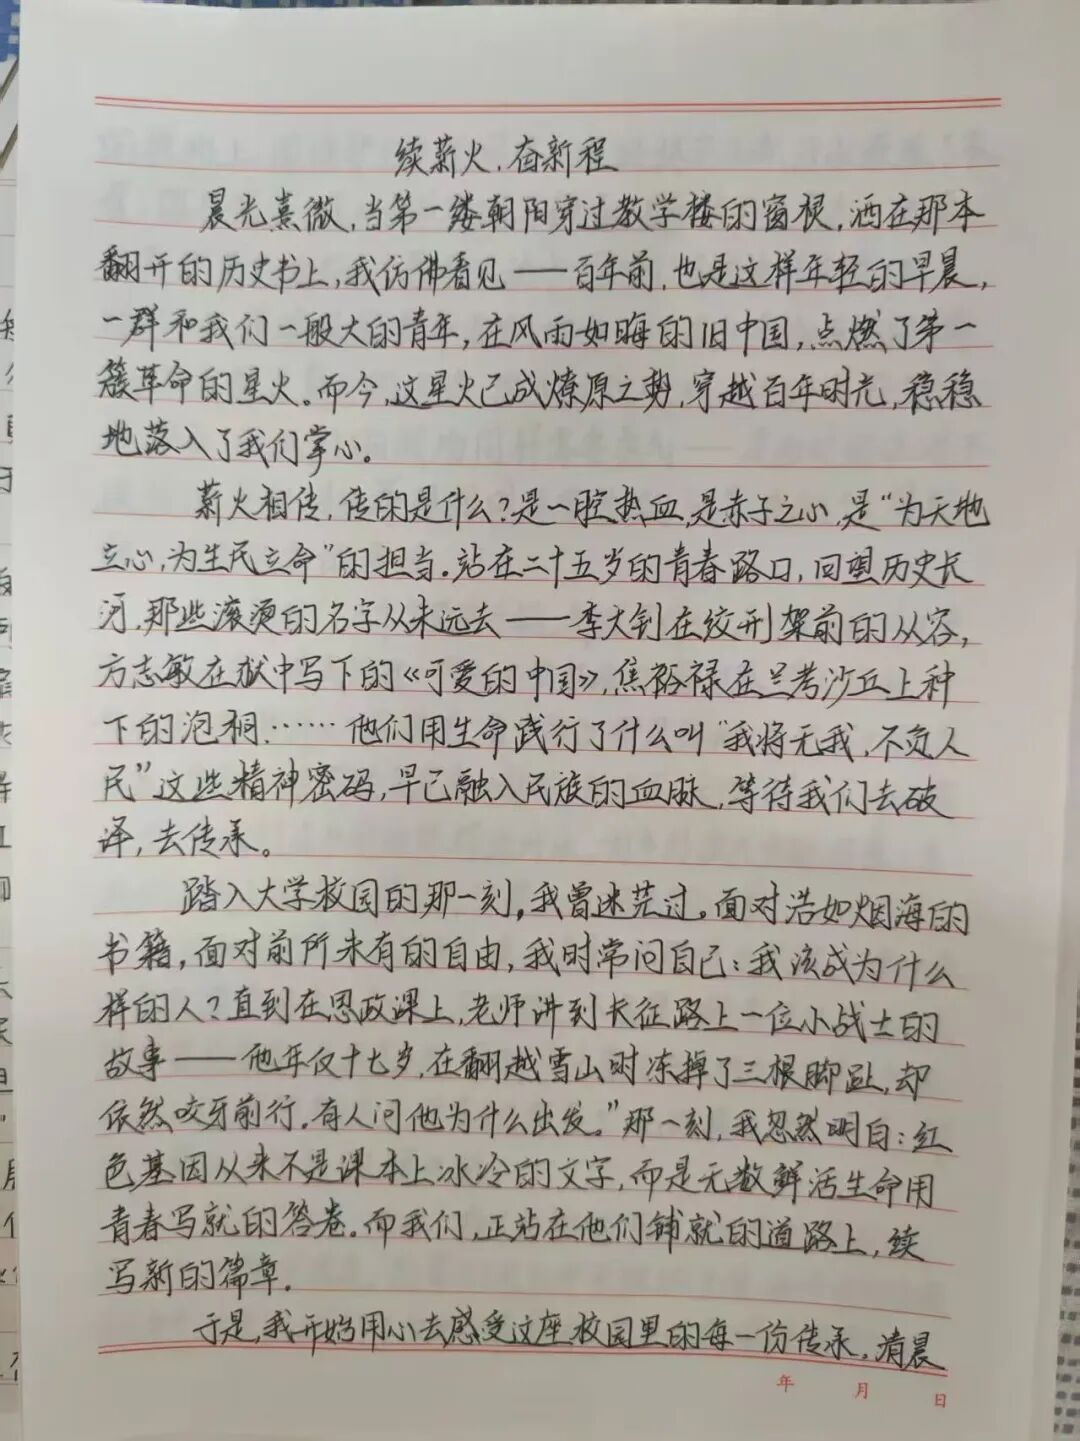 续薪火,奋新程
晨光熹微,当第一缕朝阳穿过教学楼的窗棂,洒在那本
翻开的历史书上,我仿佛看见——百年前,也是这样年轻的早晨,
一群和我们一般大的青年,在风雨如晦的旧中国,点燃了第一
簇革命的星火。而今,这星火已成燎原之势,穿越百年时光,稳稳
地落入了我们掌心。
薪火相传,传的是什么?是一腔热血,是赤子之心,是“为天地
立心,为生民立命”的担当。站在二十五岁的青春路口,回望历史长
河,那些滚烫的名字从未远去——李大钊在绞刑架前的从容,
方志敏在狱中写下的《可爱的中国》,焦裕禄在兰考沙丘上种
下的泡桐……他们用生命践行了什么叫“我将无我,不负人
民”这些精神密码,早已融入民族的血脉,等待我们去破
译,去传承。
踏入大学校园的那一刻,我曾迷茫过。面对浩如烟海的
书籍,面对前所未有的自由,我时常问自己:我该成为什么
样的人?直到在思政课上,老师讲到长征路上一位小战士的
故事——他年仅十七岁,在翻越雪山时冻掉了三根脚趾,却
依然咬牙前行。有人问他为什么出发。”那一刻,我忽然明白:红
色基因从来不是课本上冰冷的文字,而是无数鲜活生命用
青春写就的答卷。而我们,正站在他们铺就的道路上,续
写新的篇章。
于是,我开始用心去感受这座校园里的每一份传承。清晨
年 月 日